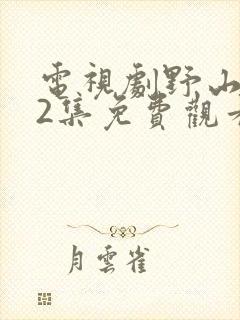 電視劇野山
2集免費觀
月雲雀